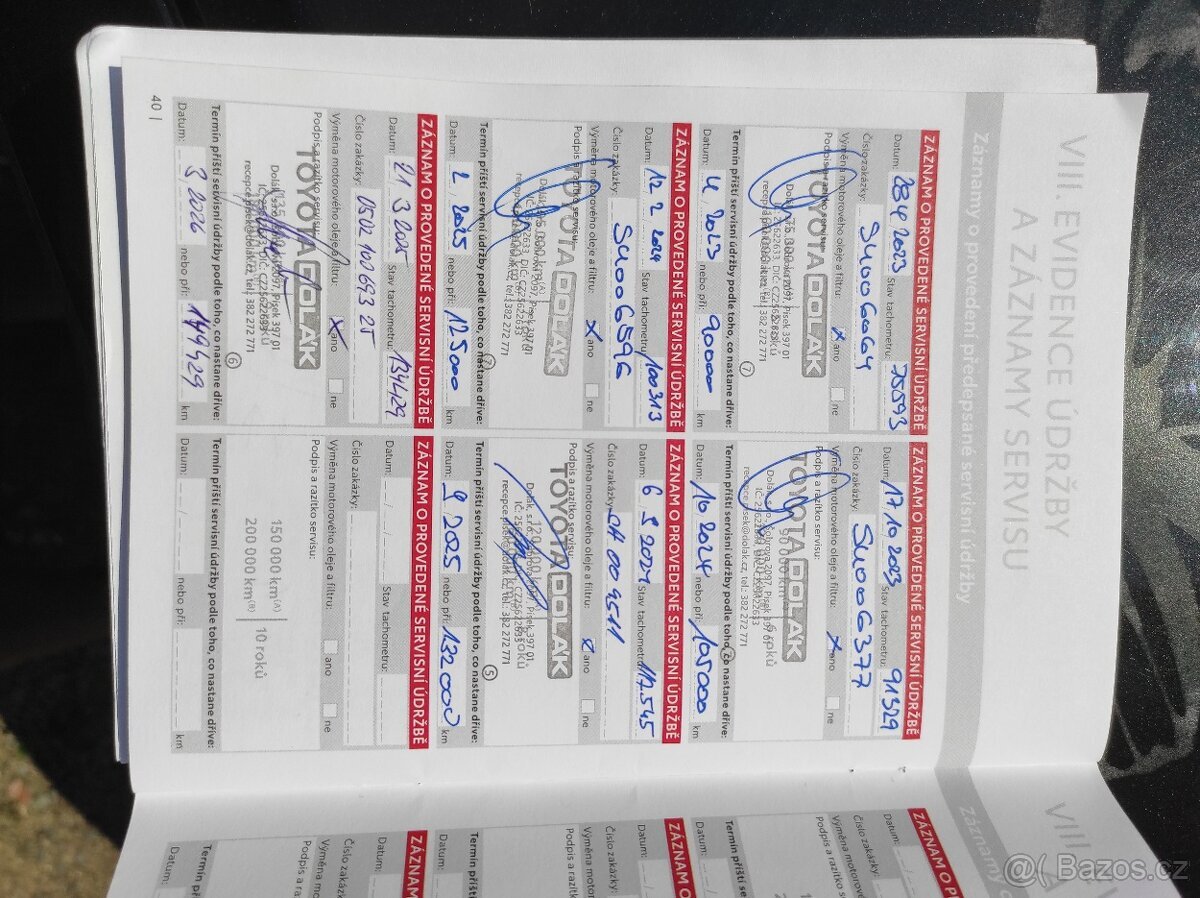 VIII. EVIDENCE ÚDRŽBY
A ZÁZNAMY SERVISU
Záznamy o provedení předepsané servisní údržby
ZÁZNAM O PROVEDENÉ SERVISNÍ ÚDRŽBĚ
Datum: 28 4 2023 Stav tachometru: 75593
Číslo zakázky: SM0060664
Výměna motorového oleje a filtru: x ano ne
Podpis a razítko servisu:
TOYOTA DOLÁK
75 000 km
7
Termín příští servisní údržby podle toho, co nastane dříve:
Datum: 4 2023 nebo při: 90000 km
ZÁZNAM O PROVEDENÉ SERVISNÍ ÚDRŽBĚ
Datum: 17 10 2023 Stav tachometru: 91329
Číslo zakázky: SM006377
Výměna motorového oleje a filtru: x ano ne
Podpis a razítko servisu:
TOYOTA DOLÁK
recepce.pisek@dolak.cz, tel.: 382 272 771
Termín příští servisní údržby podle toho, co nastane dříve:
Datum: 10 2024 nebo při: 105000 km
ZÁZNAM O PROVEDENÉ SERVISNÍ ÚDRŽBĚ
Datum: 12 2 2024 Stav tachometru: 100313
Číslo zakázky: SM006596
Výměna motorového oleje a filtru: x ano ne
Podpis a razítko servisu:
TOYOTA DOLÁK
7
Termín příští servisní údržby podle toho, co nastane dříve:
Datum: 2 2025 nebo při: 125000 km
ZÁZNAM O PROVEDENÉ SERVISNÍ ÚDRŽBĚ
Datum: 6 9 2024 Stav tachometru: 117545
Číslo zakázky:
Výměna motorového oleje a filtru: ano ne
Podpis a razítko servisu:
TOYOTA DOLÁK
recepce.pisek@dolak.cz, tel.: 382 272 771
5
Termín příští servisní údržby podle toho, co nastane dříve:
Datum: 9 2025 nebo při: 132000 km
ZÁZNAM O PROVEDENÉ SERVISNÍ ÚDRŽBĚ
Datum: 21 3 2025 Stav tachometru: 134429
Číslo zakázky: 0502 102 693 25
Výměna motorového oleje a filtru: x ano ne
Podpis a razítko servisu:
TOYOTA DOLÁK
recepce.pisek@dolak.cz, tel.: 382 272 771
6
Termín příští servisní údržby podle toho, co nastane dříve:
Datum: 3 2026 nebo při: 149429 km
ZÁZNAM O PROVEDENÉ SERVISNÍ ÚDRŽBĚ
Datum: / / Stav tachometru:
Číslo zakázky:
Výměna motorového oleje a filtru: ano ne
Podpis a razítko servisu:
150 000 km(A)
200 000 km(B)
10 roků
Termín příští servisní údržby podle toho, co nastane dříve:
Datum: / nebo při: km
40 |
VIII.
Záznamy
ZÁZNAM O
Datum:
Číslo zakázky:
Výměna
Podpis a
Termín příští
Datum:
ZÁZNAM O
Datum:
Číslo zakázky:
Výměna
Podpis a
Termín
Datum:
ZÁZNAM
Datum:
Číslo zakázky:
Výměna
Podpis a
Termín
Datum:
@( Bazos.cz